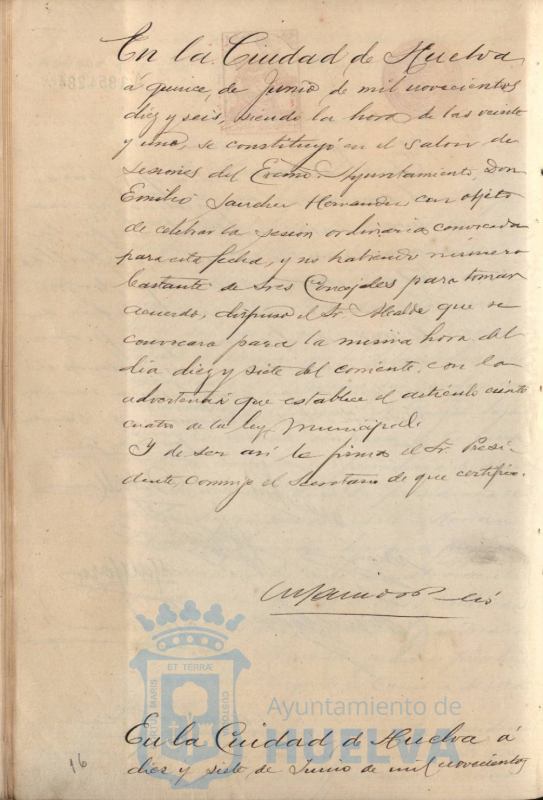 En la Ciudad de Huelva,
á quince, de Junio, de mil novecientos
diez y seis, siendo la hora de las veinte
y una, se constituyó en el salon de
sesiones del Excmo. Ayuntamiento, Don
Emilio Sanchez Hernandez con objeto
de celebrar la sesion ordinaria convocada
para esta fecha, y no habiendo número
bastante de Sres Concejales para tomar
acuerdo, dispuso el Sr. Alcalde que se
convocara para la misma hora del
dia diez y siete del corriente, con la
advertencia que establece el articulo ciento
cuatro de la ley Municipal.
Y de ser asi lo firma el Sr. Presi-
dente, conmigo el secretario de que certifico.
ET TERRÆ
MARIS
CUSTO
Ayuntamiento de
HUELVA
En la Cuidad de Huelva á
diez y siete de Junio de mil novecientos
16